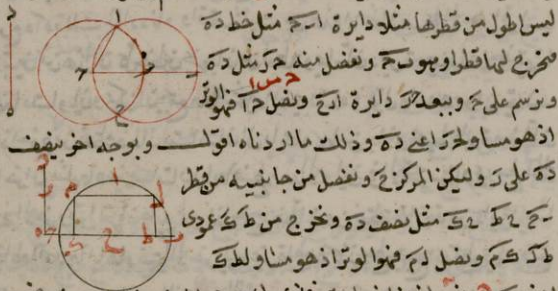 ليس اطول من قطرها مثلا دايرة ا ب ج مثل خط د ه
فنخرج لها قطرا وهو ب ج ونفصل منه ج ر مثل د ه
ونرسم على ج وببعد ج ر دايرة ا ر ح ونصل ج ا فهو الوتر
اذ هو مساو لج ر اعني د ه وذلك ما اردناه اقول وبوجه اخر ننصف
د ه على ر وليكن المركز ح ونفصل من جانبيه من قطر
ب ج ح ط ح ك مثل نصف د ه ونخرج من ط ك عمودي
ط ل ك م ونصل ل م فهو الوتر اذ هو مساو لط ك